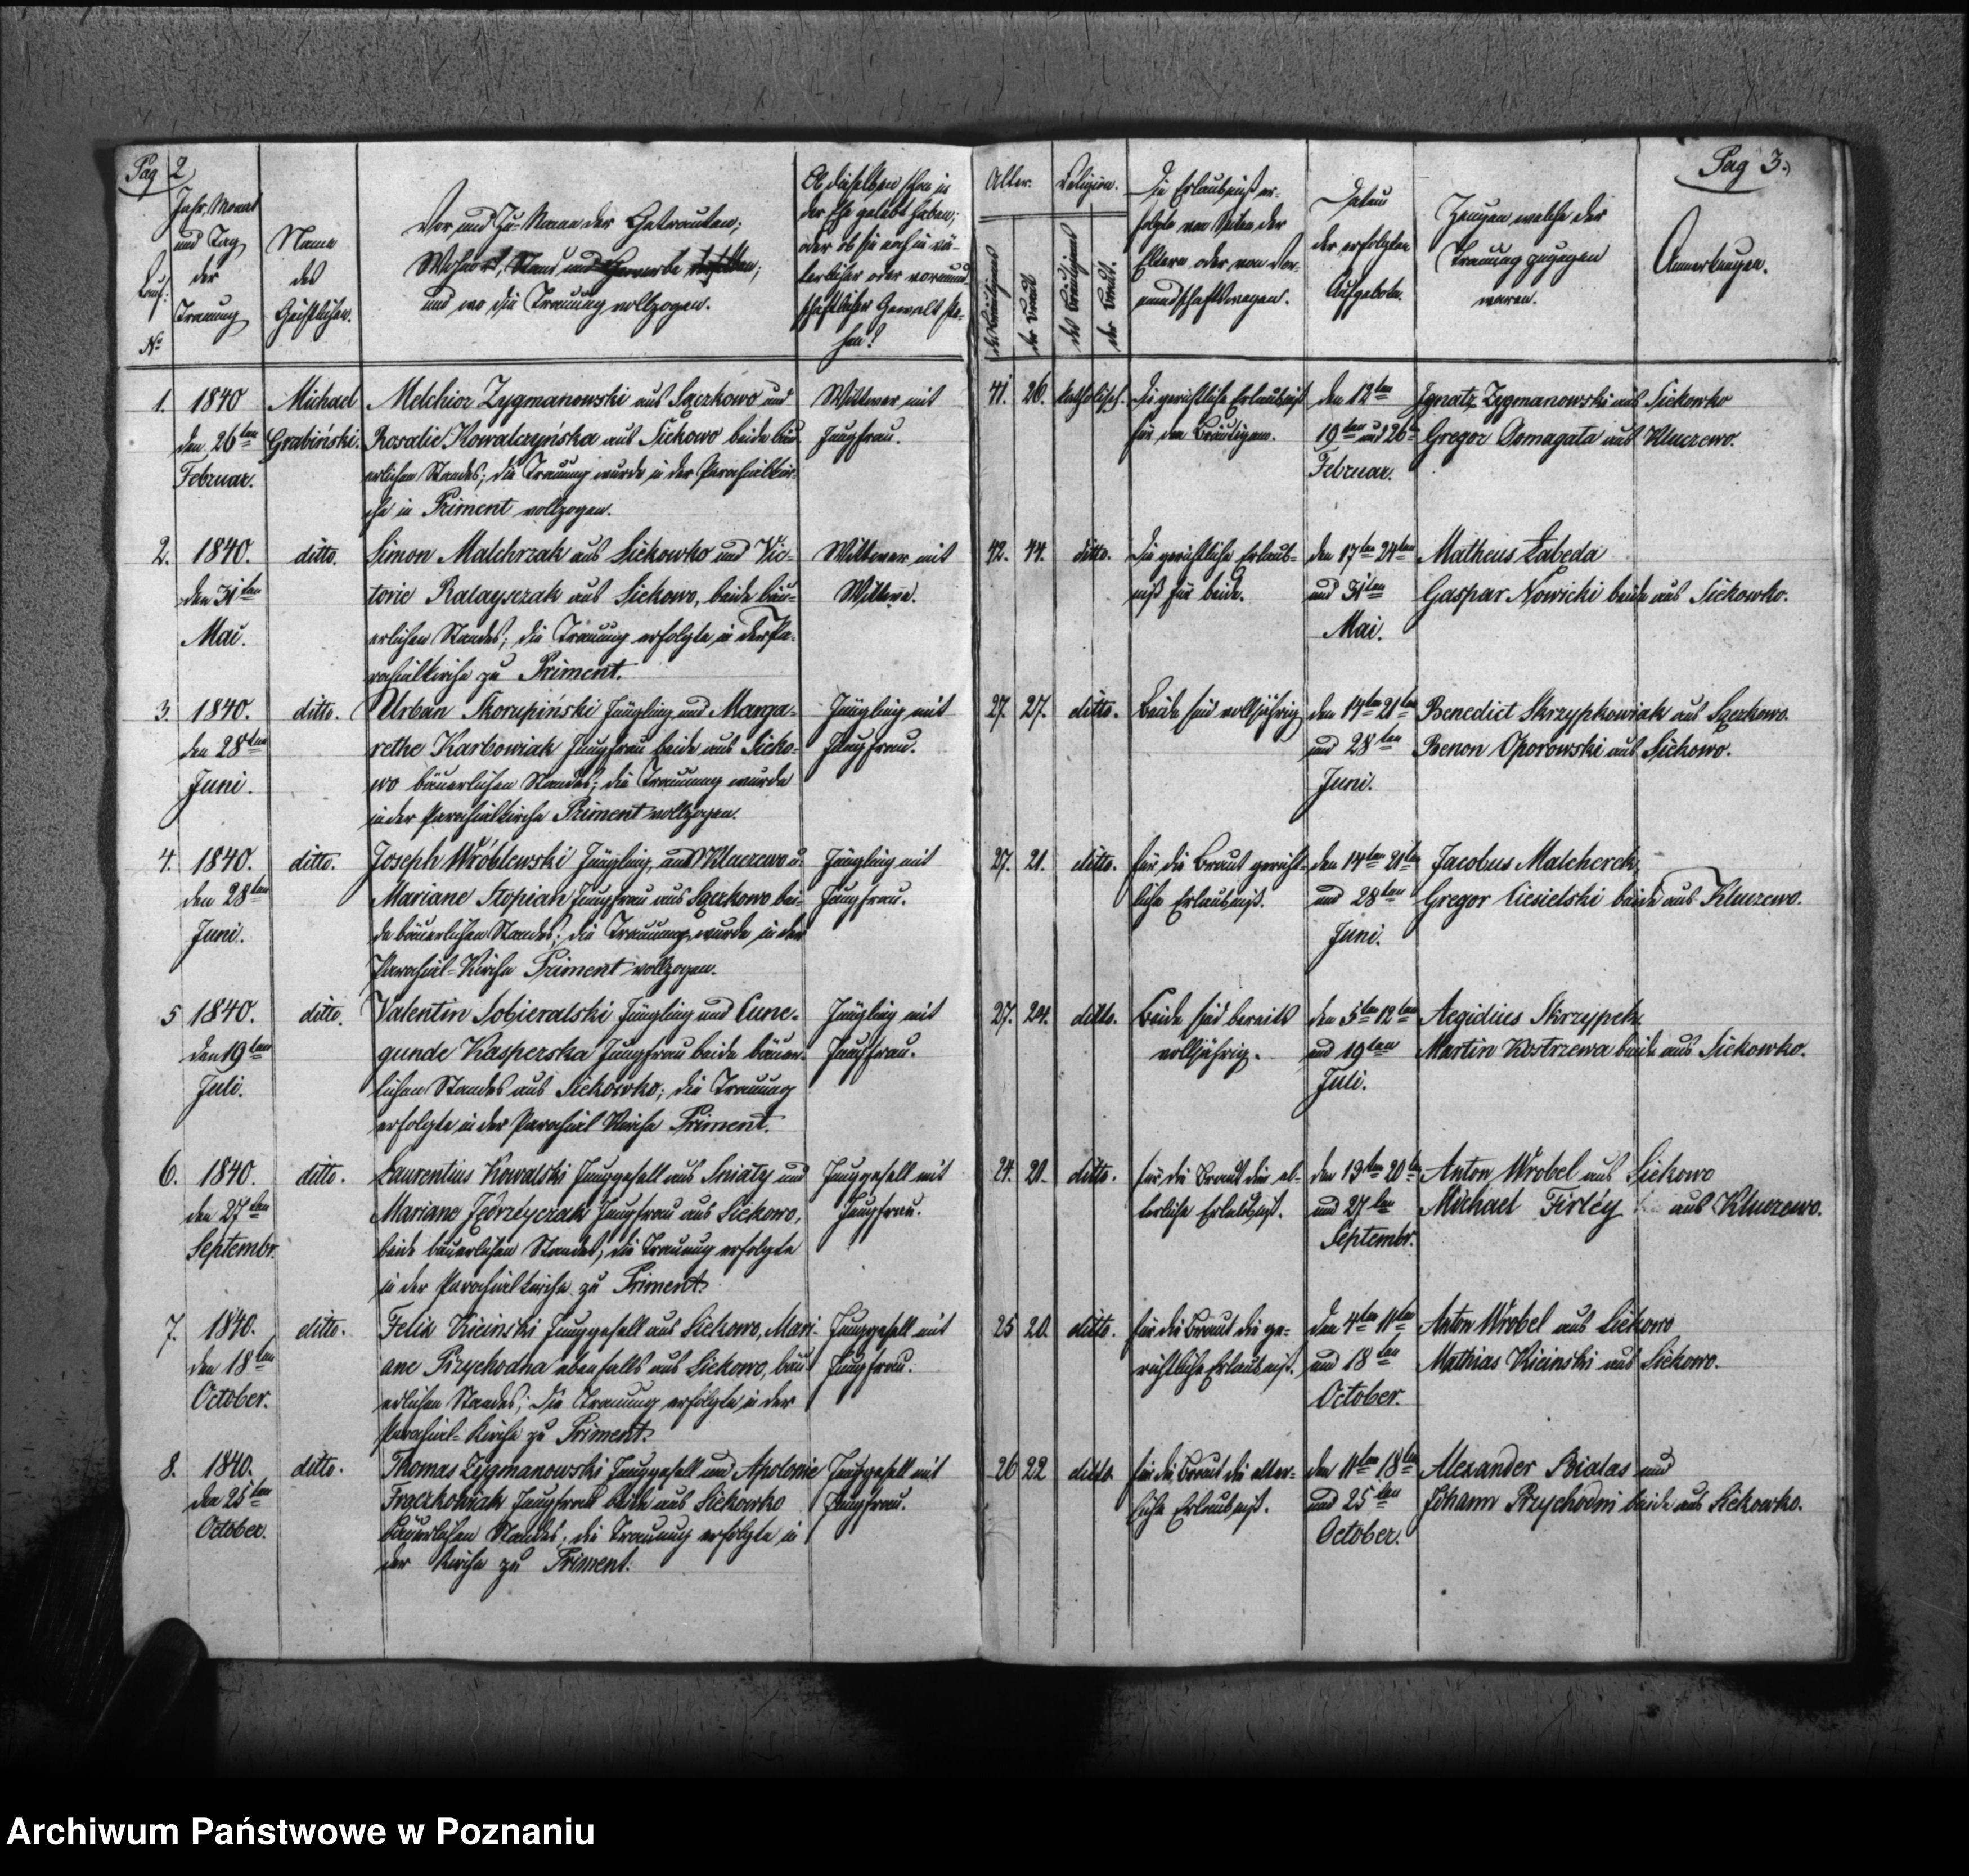 Pag 2
Lauf:
No
Jahr, Monat
und Tag
der
Trauung
Name
des
Geistlichen.
Vor und Zu-Name der Getrauten;
Wohnort, Stand und Gewerbe derselben;
und wo die Trauung vollzogen.
Ob dieselben schon in
der Ehe gelebt haben;
oder ob sie noch in vä-
terlicher oder vormund-
schaftlicher Gewalt ste-
hen?
1.
1840
den 26ten
Februar.
Michael
Grabiński.
Melchior Zygmanowski aus Sączkowo und
Rosalie Kowalczyńska aus Siekowo beide bäu-
erlichen Standes; die Trauung wurde in der Parochialkir-
che in Priment vollzogen.
Wittwer mit
Jungfrau.
2.
1840.
den 31ten
Mai.
ditto.
Simon Malchrzak aus Siekowko und Vic-
torie Ratayczak aus Siekowo, beide bäu-
erlichen Standes; die Trauung erfolgte in der Pa-
rochialkirche zu Priment.
Wittwer mit
Wittwe.
3.
1840.
den 28ten
Juni.
ditto.
Urban Skorupiński Jüngling und Marga-
rethe Karbowiak Jungfrau beide aus Sieko-
wo bäuerlichen Standes; die Trauung wurde
in der Parochialkirche Priment vollzogen.
Jüngling mit
Jungfrau.
4.
1840.
den 28ten
Juni.
ditto.
Joseph Wróblewski Jüngling, aus Kluczewo u.
Mariane Stopian Jungfrau aus Sączkowo bei-
de bäuerlichen Standes; die Trauung wurde in der
Parochial-Kirche Priment vollzogen.
Jüngling mit
Jungfrau.
5
1840.
den 19ten
Juli.
ditto.
Valentin Sobieralski Jüngling und Cune-
gunde Kasperska Jungfrau beide bäuer-
lichen Standes aus Siekowko; die Trauung
erfolgte in der Parochial Kirche Priment.
Jüngling mit
Jungfrau.
6.
1840.
den 27ten
Septembr.
ditto.
Laurentius Kowalski Junggesell aus Sniaty und
Mariane Jędrzeyczak Jungfrau aus Siekowo,
beide bäuerlichen Standes, die Trauung erfolgte
in der Parochialkirche zu Priment.
Junggesell mit
Jungfrau.
7.
1840.
den 18ten
October.
ditto.
Felix Kicinski Junggesell aus Siekowo, Mari-
ane Przychodna ebenfalls aus Siekowo, bäu-
erlichen Standes; die Trauung erfolgte in der
Parochial-Kirche zu Priment.
Junggesell mit
Jungfrau.
8.
1840.
den 25ten
October.
ditto.
Thomas Zygmanowski Junggesell und Apolonie
Frąckowiak Jungfrau beide aus Siekowko
bäuerlichen Standes; die Trauung erfolgte in
der Kirche zu Priment.
Junggesell mit
Jungfrau.
Pag 3.
Alter.
des Bräutigams
der Braut
Religion.
des Bräutigams
der Braut.
Die Erlaubniß er-
folgte von Seiten der
Eltern oder von Vor-
mundschaftswegen.
Datum
der erfolgten
Aufgebote.
Zeugen welche der
Trauung zugegen
waren.
Anmerkungen.
41. 26. katholisch.
Die gerichtliche Erlaubniß
für den Bräutigam.
den 12ten
19ten und 26ten
Februar.
Ignatz Zygmanowski aus Siekowko
Gregor Domagała aus Kluczewo.
42. 44. ditto.
Die gerichtliche Erlaub-
niß für beide.
den 17ten 24ten
und 31ten
Mai.
Matheus Łabeda
Gaspar Nowicki beide aus Siekowko.
27. 27. ditto.
Beide sind volljährig
den 14ten 21ten
und 28ten
Juni.
Benedict Skrzypkowiak aus Sączkowo.
Benon Oporowski aus Siekowo.
27. 21. ditto.
für die Braut gericht-
liche Erlaubniß.
den 14ten 21ten
und 28ten
Juni.
Jacobus Malcherek
Gregor Ciesielski beide aus Kluczewo.
27. 24. ditto.
Beide sind bereits
volljährig.
den 5ten 12ten
und 19ten
Juli.
Aegidius Skrzypek
Martin Kostrzewa beide aus Siekowko.
24. 21. ditto.
für die Braut die el-
terliche Erlaubniß.
den 13ten 20ten
und 27ten
Septembr.
Anton Wrobel aus Siekowo
Michael Firléy aus Kluczewo.
25 20. ditto.
für die Braut die ge-
richtliche Erlaubniß.
den 4ten 11ten
und 18ten
October.
Anton Wrobel aus Siekowo
Mathias Kicinski aus Siekowo.
26 22 ditto
für die Braut die elter-
liche Erlaubniß.
den 11ten 18ten
und 25ten
October.
Alexander Bialas und
Johann Przychodni beide aus Siekowko.
Archiwum Państwowe w Poznaniu